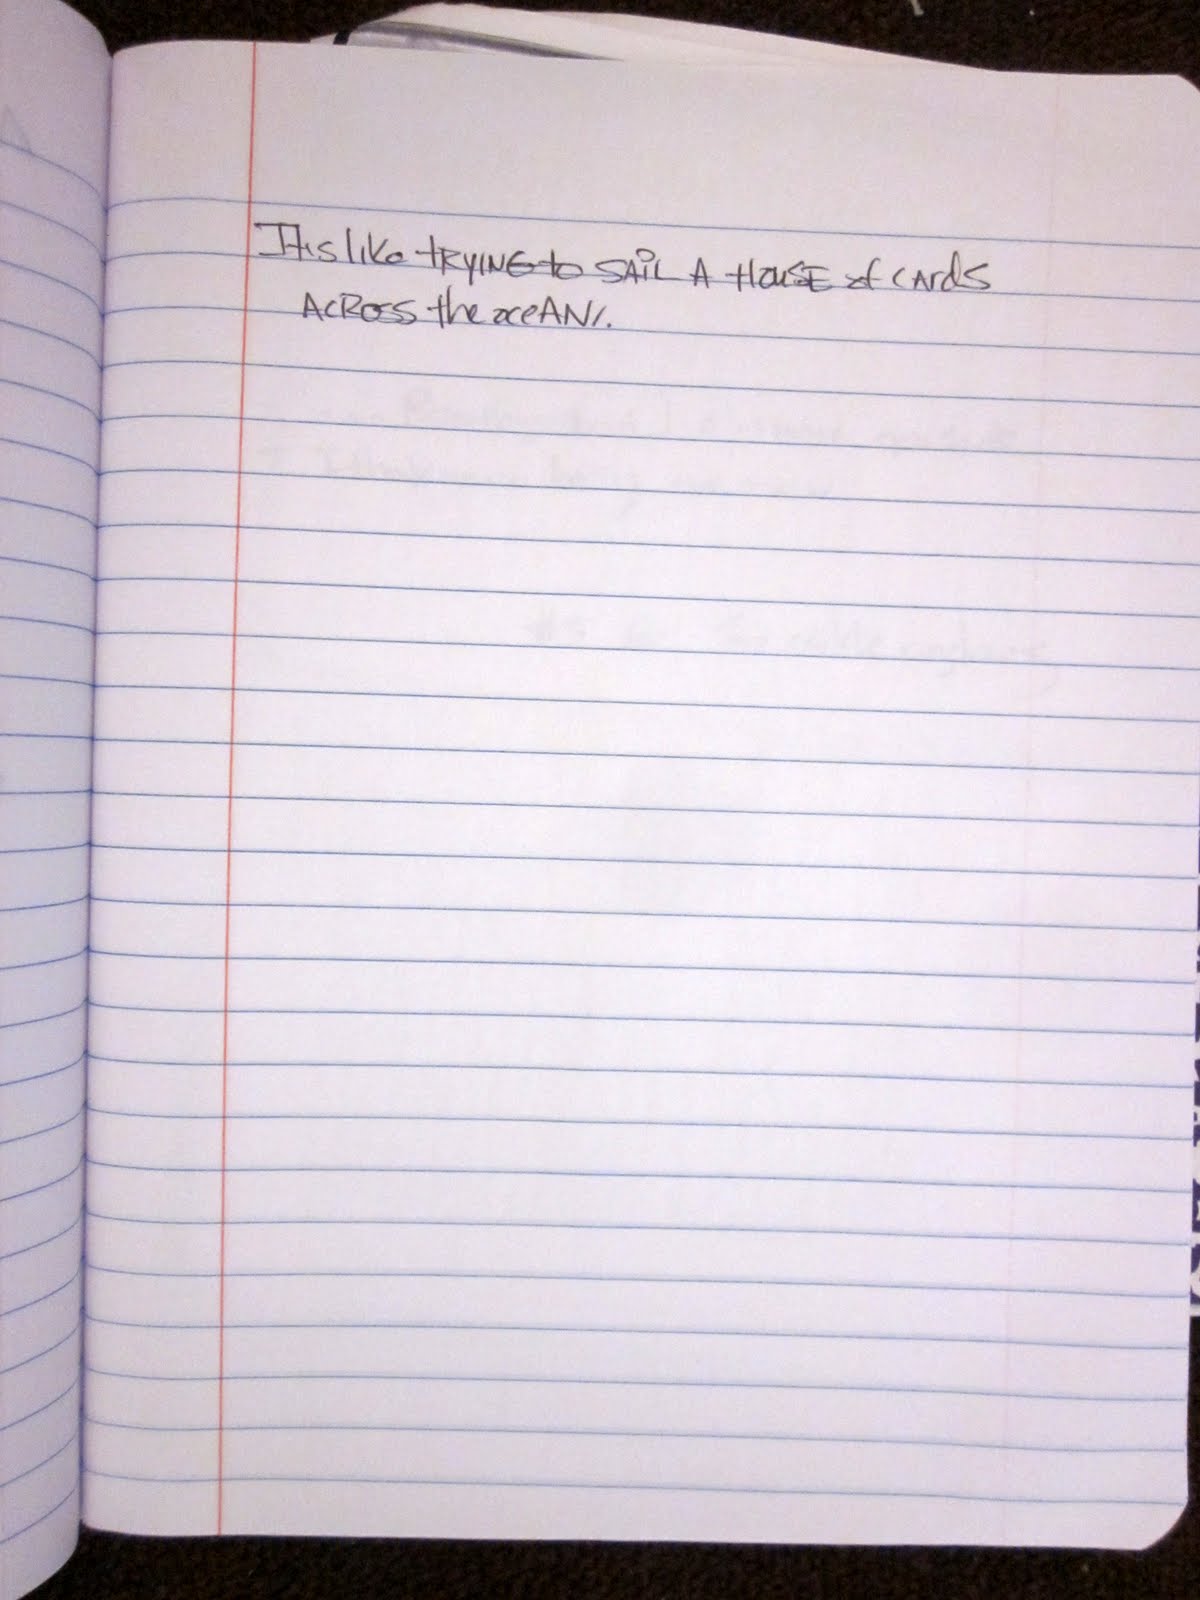 It is like TRYING to SAIL A HOUSE of CARdS
ACROSS the oceAN.